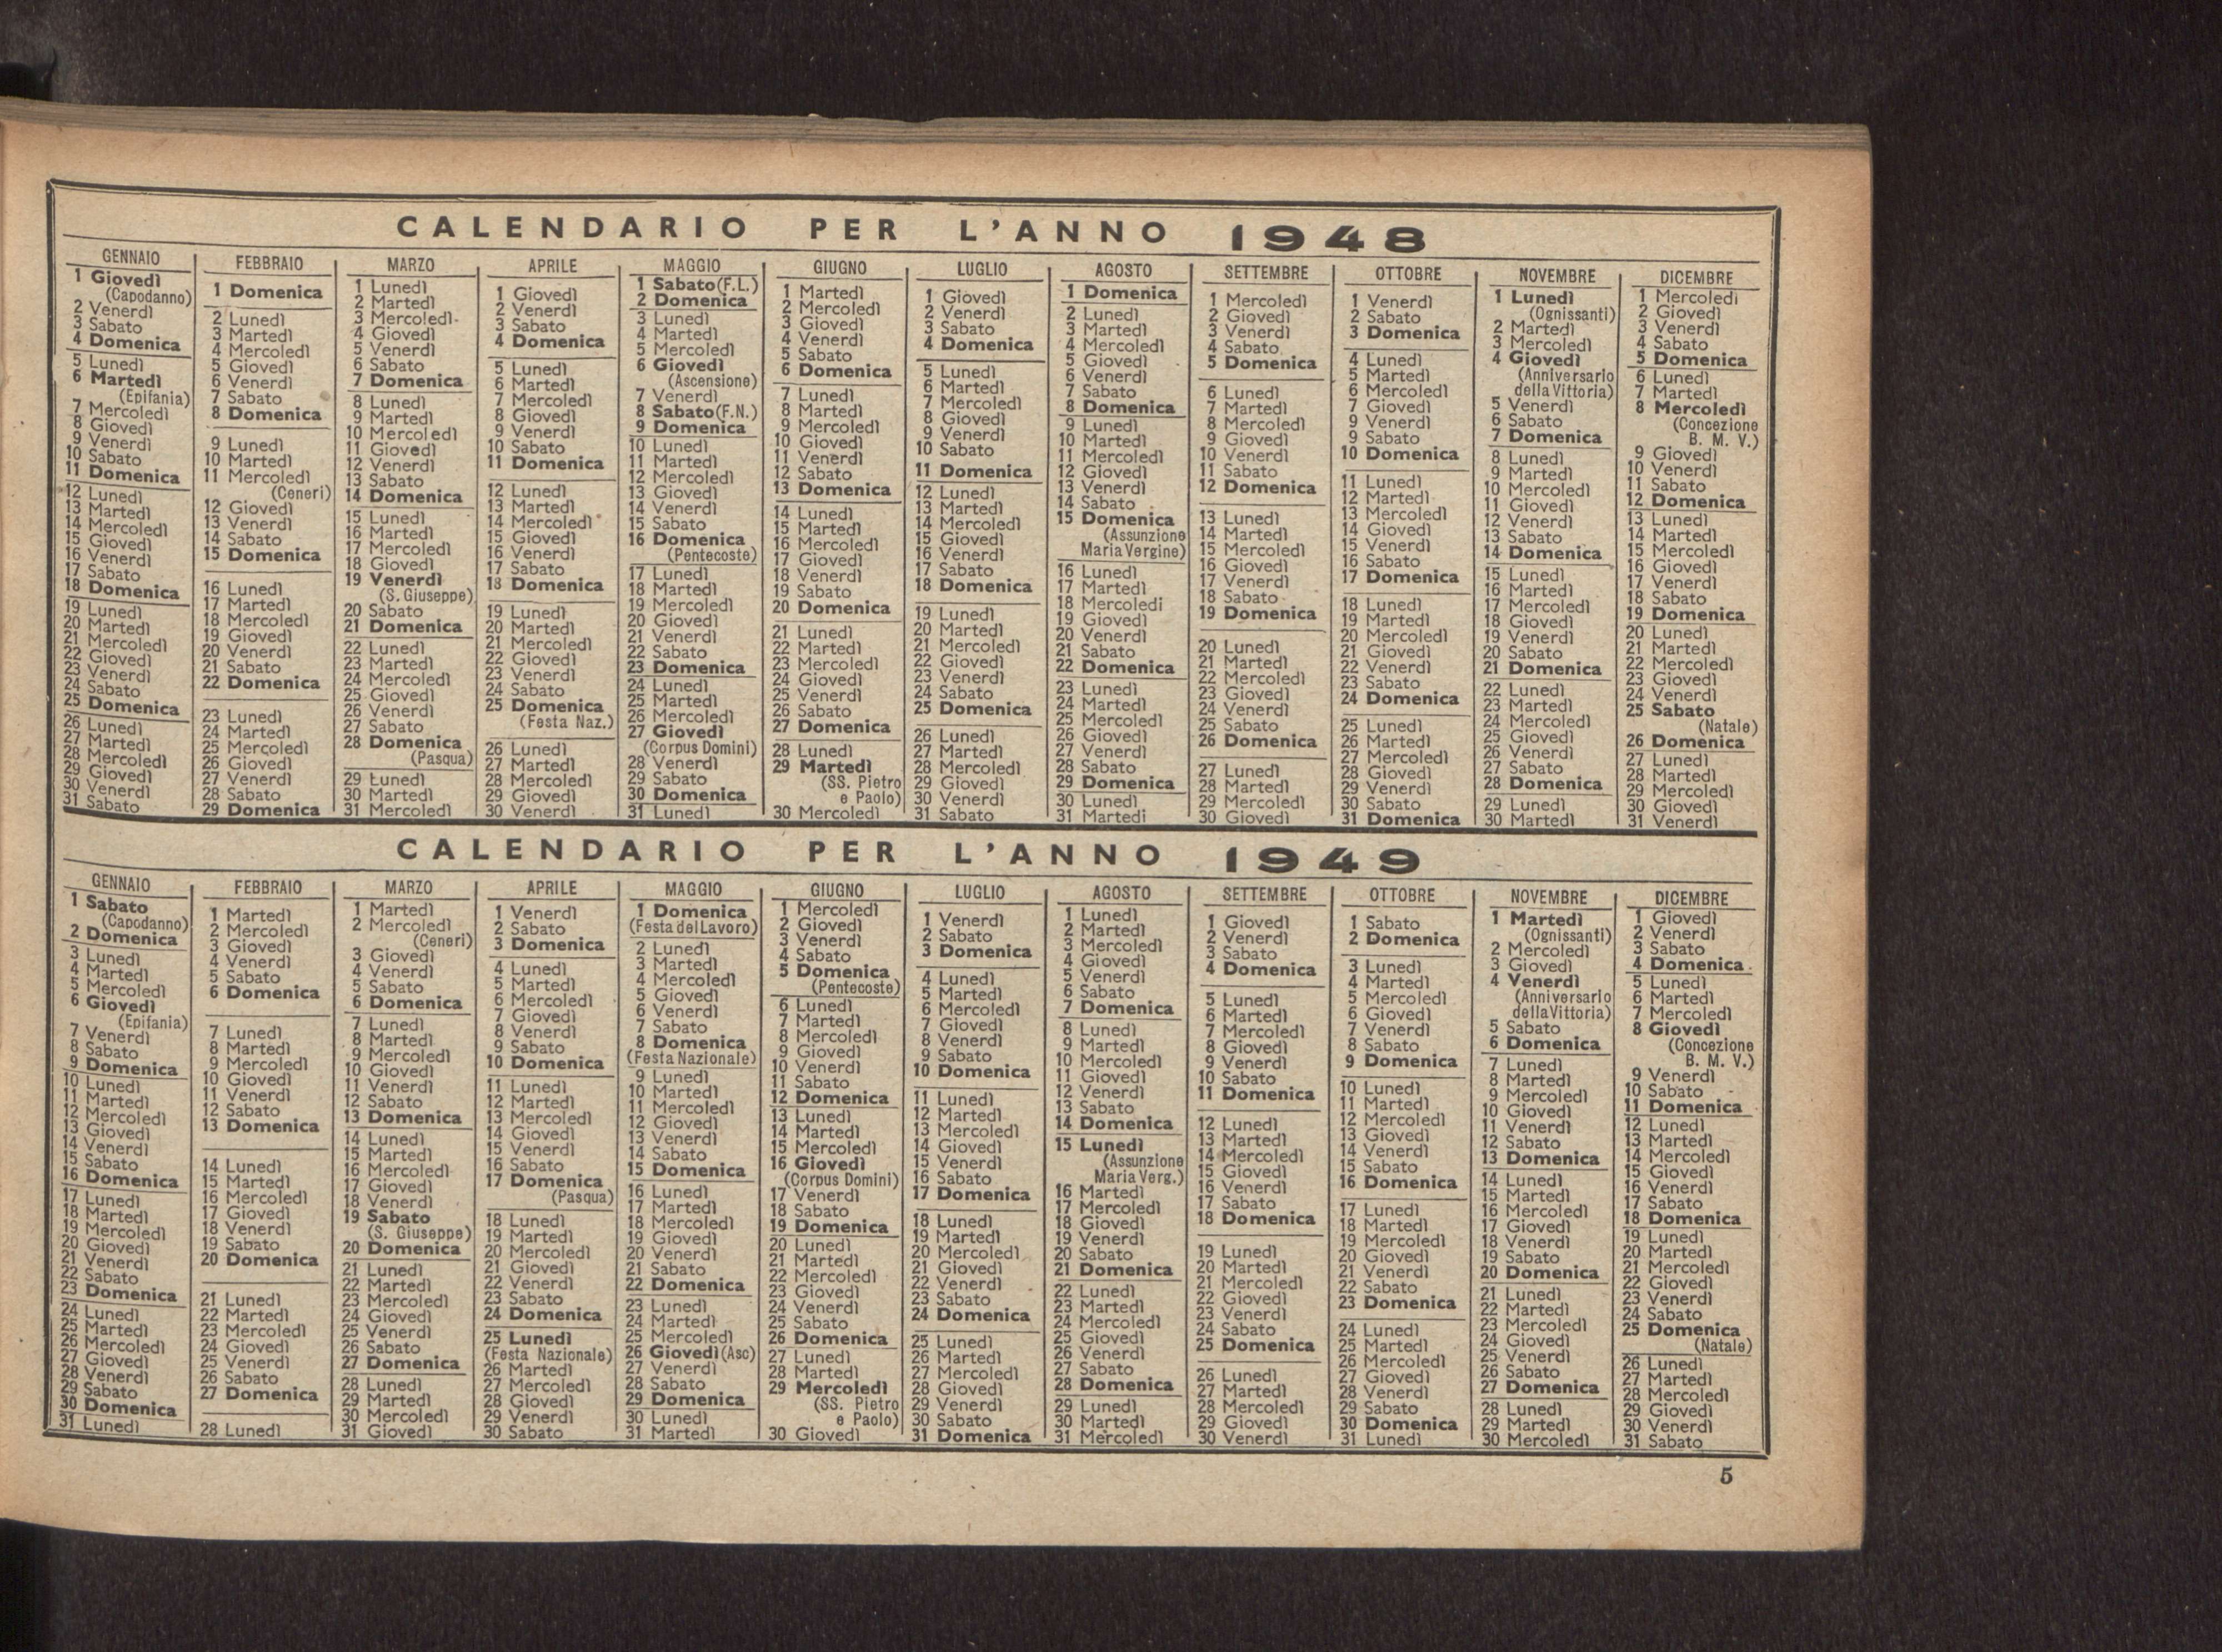 CALENDARIO PER L'ANNO 1948
GENNAIO
1 Giovedì
(Capodanno)
2 Venerdì
3 Sabato
4 Domenica
5 Lunedì
6 Martedì
(Epifania)
7 Mercoledì
8 Giovedì
9 Venerdì
10 Sabato
11 Domenica
12 Lunedì
13 Martedì
14 Mercoledì
15 Giovedì
16 Venerdì
17 Sabato
18 Domenica
19 Lunedì
20 Martedì
21 Mercoledì
22 Giovedì
23 Venerdì
24 Sabato
25 Domenica
26 Lunedì
27 Martedì
28 Mercoledì
29 Giovedì
30 Venerdì
31 Sabato
FEBBRAIO
1 Domenica
2 Lunedì
3 Martedì
4 Mercoledì
5 Giovedì
6 Venerdì
7 Sabato
8 Domenica
9 Lunedì
10 Martedì
11 Mercoledì
(Ceneri)
12 Giovedì
13 Venerdì
14 Sabato
15 Domenica
16 Lunedì
17 Martedì
18 Mercoledì
19 Giovedì
20 Venerdì
21 Sabato
22 Domenica
23 Lunedì
24 Martedì
25 Mercoledì
26 Giovedì
27 Venerdì
28 Sabato
29 Domenica
MARZO
1 Lunedì
2 Martedì
3 Mercoledì
4 Giovedì
5 Venerdì
6 Sabato
7 Domenica
8 Lunedì
9 Martedì
10 Mercoledì
11 Giovedì
12 Venerdì
13 Sabato
14 Domenica
15 Lunedì
16 Martedì
17 Mercoledì
18 Giovedì
19 Venerdì
(S. Giuseppe)
20 Sabato
21 Domenica
22 Lunedì
23 Martedì
24 Mercoledì
25 Giovedì
26 Venerdì
27 Sabato
28 Domenica
(Pasqua)
29 Lunedì
30 Martedì
31 Mercoledì
APRILE
1 Giovedì
2 Venerdì
3 Sabato
4 Domenica
5 Lunedì
6 Martedì
7 Mercoledì
8 Giovedì
9 Venerdì
10 Sabato
11 Domenica
12 Lunedì
13 Martedì
14 Mercoledì
15 Giovedì
16 Venerdì
17 Sabato
18 Domenica
19 Lunedì
20 Martedì
21 Mercoledì
22 Giovedì
23 Venerdì
24 Sabato
25 Domenica
(Festa Naz.)
26 Lunedì
27 Martedì
28 Mercoledì
29 Giovedì
30 Venerdì
MAGGIO
1 Sabato (F.L.)
2 Domenica
3 Lunedì
4 Martedì
5 Mercoledì
6 Giovedì
(Ascensione)
7 Venerdì
8 Sabato (F.N.)
9 Domenica
10 Lunedì
11 Martedì
12 Mercoledì
13 Giovedì
14 Venerdì
15 Sabato
16 Domenica
(Pentecoste)
17 Lunedì
18 Martedì
19 Mercoledì
20 Giovedì
21 Venerdì
22 Sabato
23 Domenica
24 Lunedì
25 Martedì
26 Mercoledì
27 Giovedì
(Corpus Domini)
28 Venerdì
29 Sabato
30 Domenica
31 Lunedì
GIUGNO
1 Martedì
2 Mercoledì
3 Giovedì
4 Venerdì
5 Sabato
6 Domenica
7 Lunedì
8 Martedì
9 Mercoledì
10 Giovedì
11 Venerdì
12 Sabato
13 Domenica
14 Lunedì
15 Martedì
16 Mercoledì
17 Giovedì
18 Venerdì
19 Sabato
20 Domenica
21 Lunedì
22 Martedì
23 Mercoledì
24 Giovedì
25 Venerdì
26 Sabato
27 Domenica
28 Lunedì
29 Martedì
(SS. Pietro
e Paolo)
30 Mercoledì
LUGLIO
1 Giovedì
2 Venerdì
3 Sabato
4 Domenica
5 Lunedì
6 Martedì
7 Mercoledì
8 Giovedì
9 Venerdì
10 Sabato
11 Domenica
12 Lunedì
13 Martedì
14 Mercoledì
15 Giovedì
16 Venerdì
17 Sabato
18 Domenica
19 Lunedì
20 Martedì
21 Mercoledì
22 Giovedì
23 Venerdì
24 Sabato
25 Domenica
26 Lunedì
27 Martedì
28 Mercoledì
29 Giovedì
30 Venerdì
31 Sabato
AGOSTO
1 Domenica
2 Lunedì
3 Martedì
4 Mercoledì
5 Giovedì
6 Venerdì
7 Sabato
8 Domenica
9 Lunedì
10 Martedì
11 Mercoledì
12 Giovedì
13 Venerdì
14 Sabato
15 Domenica
(Assunzione
Maria Vergine)
16 Lunedì
17 Martedì
18 Mercoledi
19 Giovedì
20 Venerdì
21 Sabato
22 Domenica
23 Lunedì
24 Martedì
25 Mercoledì
26 Giovedì
27 Venerdì
28 Sabato
29 Domenica
30 Lunedì
31 Martedi
SETTEMBRE
1 Mercoledì
2 Giovedì
3 Venerdì
4 Sabato
5 Domenica
6 Lunedì
7 Martedì
8 Mercoledì
9 Giovedì
10 Venerdì
11 Sabato
12 Domenica
13 Lunedì
14 Martedì
15 Mercoledì
16 Giovedì
17 Venerdì
18 Sabato
19 Domenica
20 Lunedì
21 Martedì
22 Mercoledì
23 Giovedì
24 Venerdì
25 Sabato
26 Domenica
27 Lunedì
28 Martedì
29 Mercoledì
30 Giovedì
OTTOBRE
1 Venerdì
2 Sabato
3 Domenica
4 Lunedì
5 Martedì
6 Mercoledì
7 Giovedì
9 Venerdì
9 Sabato
10 Domenica
11 Lunedì
12 Martedì
13 Mercoledì
14 Giovedì
15 Venerdì
16 Sabato
17 Domenica
18 Lunedì
19 Martedì
20 Mercoledì
21 Giovedì
22 Venerdì
23 Sabato
24 Domenica
25 Lunedì
26 Martedì
27 Mercoledì
28 Giovedì
29 Venerdì
30 Sabato
31 Domenica
NOVEMBRE
1 Lunedì
(Ognissanti)
2 Martedì
3 Mercoledì
4 Giovedì
(Anniversario
della Vittoria)
5 Venerdì
6 Sabato
7 Domenica
8 Lunedì
9 Martedì
10 Mercoledì
11 Giovedì
12 Venerdì
13 Sabato
14 Domenica
15 Lunedì
16 Martedì
17 Mercoledì
18 Giovedì
19 Venerdì
20 Sabato
21 Domenica
22 Lunedì
23 Martedì
24 Mercoledì
25 Giovedì
26 Venerdì
27 Sabato
28 Domenica
29 Lunedì
30 Martedì
DICEMBRE
1 Mercoledì
2 Giovedì
3 Venerdì
4 Sabato
5 Domenica
6 Lunedì
7 Martedì
8 Mercoledì
(Concezione
B. M. V.)
9 Giovedì
10 Venerdì
11 Sabato
12 Domenica
13 Lunedì
14 Martedì
15 Mercoledì
16 Giovedì
17 Venerdì
18 Sabato
19 Domenica
20 Lunedì
21 Martedì
22 Mercoledì
23 Giovedì
24 Venerdì
25 Sabato
(Natale)
26 Domenica
27 Lunedì
28 Martedì
29 Mercoledì
30 Giovedì
31 Venerdì
CALENDARIO PER L'ANNO 1949
GENNAIO
1 Sabato
(Capodanno)
2 Domenica
3 Lunedì
4 Martedì
5 Mercoledì
6 Giovedì
(Epifania)
7 Venerdì
8 Sabato
9 Domenica
10 Lunedì
11 Martedì
12 Mercoledì
13 Giovedì
14 Venerdì
15 Sabato
16 Domenica
17 Lunedì
18 Martedì
19 Mercoledì
20 Giovedì
21 Venerdì
22 Sabato
23 Domenica
24 Lunedì
25 Martedì
26 Mercoledì
27 Giovedì
28 Venerdì
29 Sabato
30 Domenica
31 Lunedì
FEBBRAIO
1 Martedì
2 Mercoledì
3 Giovedì
4 Venerdì
5 Sabato
6 Domenica
7 Lunedì
8 Martedì
9 Mercoledì
10 Giovedì
11 Venerdì
12 Sabato
13 Domenica
14 Lunedì
15 Martedì
16 Mercoledì
17 Giovedì
18 Venerdì
19 Sabato
20 Domenica
21 Lunedì
22 Martedì
23 Mercoledì
24 Giovedì
25 Venerdì
26 Sabato
27 Domenica
28 Lunedì
MARZO
1 Martedì
2 Mercoledì
(Ceneri)
3 Giovedì
4 Venerdì
5 Sabato
6 Domenica
7 Lunedì
8 Martedì
9 Mercoledì
10 Giovedì
11 Venerdì
12 Sabato
13 Domenica
14 Lunedì
15 Martedì
16 Mercoledì
17 Giovedì
18 Venerdì
19 Sabato
(S. Giuseppe)
20 Domenica
21 Lunedì
22 Martedì
23 Mercoledì
24 Giovedì
25 Venerdì
26 Sabato
27 Domenica
28 Lunedì
29 Martedì
30 Mercoledì
31 Giovedì
APRILE
1 Venerdì
2 Sabato
3 Domenica
4 Lunedì
5 Martedì
6 Mercoledì
7 Giovedì
8 Venerdì
9 Sabato
10 Domenica
11 Lunedì
12 Martedì
13 Mercoledì
14 Giovedì
15 Venerdì
16 Sabato
17 Domenica
(Pasqua)
18 Lunedì
19 Martedì
20 Mercoledì
21 Giovedì
22 Venerdì
23 Sabato
24 Domenica
25 Lunedì
(Festa Nazionale)
26 Martedì
27 Mercoledì
28 Giovedì
29 Venerdì
30 Sabato
MAGGIO
1 Domenica
(Festa del Lavoro)
2 Lunedì
3 Martedì
4 Mercoledì
5 Giovedì
6 Venerdì
7 Sabato
8 Domenica
(Festa Nazionale)
9 Lunedì
10 Martedì
11 Mercoledì
12 Giovedì
13 Venerdì
14 Sabato
15 Domenica
16 Lunedì
17 Martedì
18 Mercoledì
19 Giovedì
20 Venerdì
21 Sabato
22 Domenica
23 Lunedì
24 Martedì
25 Mercoledì
26 Giovedì (Asc)
27 Venerdì
28 Sabato
29 Domenica
30 Lunedì
31 Martedì
GIUGNO
1 Mercoledì
2 Giovedì
3 Venerdì
4 Sabato
5 Domenica
(Pentecoste)
6 Lunedì
7 Martedì
8 Mercoledì
9 Giovedì
10 Venerdì
11 Sabato
12 Domenica
13 Lunedì
14 Martedì
15 Mercoledì
16 Giovedì
(Corpus Domini)
17 Venerdì
18 Sabato
19 Domenica
20 Lunedì
21 Martedì
22 Mercoledì
23 Giovedì
24 Venerdì
25 Sabato
26 Domenica
27 Lunedì
28 Martedì
29 Mercoledì
(SS. Pietro
e Paolo)
30 Giovedì
LUGLIO
1 Venerdì
2 Sabato
3 Domenica
4 Lunedì
5 Martedì
6 Mercoledì
7 Giovedì
8 Venerdì
9 Sabato
10 Domenica
11 Lunedì
12 Martedì
13 Mercoledì
14 Giovedì
15 Venerdì
16 Sabato
17 Domenica
18 Lunedì
19 Martedì
20 Mercoledì
21 Giovedì
22 Venerdì
23 Sabato
24 Domenica
25 Lunedì
26 Martedì
27 Mercoledì
28 Giovedì
29 Venerdì
30 Sabato
31 Domenica
AGOSTO
1 Lunedì
2 Martedì
3 Mercoledì
4 Giovedì
5 Venerdì
6 Sabato
7 Domenica
8 Lunedì
9 Martedì
10 Mercoledì
11 Giovedì
12 Venerdì
13 Sabato
14 Domenica
15 Lunedì
(Assunzione
Maria Verg.)
16 Martedì
17 Mercoledì
18 Giovedì
19 Venerdì
20 Sabato
21 Domenica
22 Lunedì
23 Martedì
24 Mercoledì
25 Giovedì
26 Venerdì
27 Sabato
28 Domenica
29 Lunedì
30 Martedì
31 Mercoledì
SETTEMBRE
1 Giovedì
2 Venerdì
3 Sabato
4 Domenica
5 Lunedì
6 Martedì
7 Mercoledì
8 Giovedì
9 Venerdì
10 Sabato
11 Domenica
12 Lunedì
13 Martedì
14 Mercoledì
15 Giovedì
16 Venerdì
17 Sabato
18 Domenica
19 Lunedì
20 Martedì
21 Mercoledì
22 Giovedì
23 Venerdì
24 Sabato
25 Domenica
26 Lunedì
27 Martedì
28 Mercoledì
29 Giovedì
30 Venerdì
OTTOBRE
1 Sabato
2 Domenica
3 Lunedì
4 Martedì
5 Mercoledì
6 Giovedì
7 Venerdì
8 Sabato
9 Domenica
10 Lunedì
11 Martedì
12 Mercoledì
13 Giovedì
14 Venerdì
15 Sabato
16 Domenica
17 Lunedì
18 Martedì
19 Mercoledì
20 Giovedì
21 Venerdì
22 Sabato
23 Domenica
24 Lunedì
25 Martedì
26 Mercoledì
27 Giovedì
28 Venerdì
29 Sabato
30 Domenica
31 Lunedì
NOVEMBRE
1 Martedì
(Ognissanti)
2 Mercoledì
3 Giovedì
4 Venerdì
(Anniversario
della Vittoria)
5 Sabato
6 Domenica
7 Lunedì
8 Martedì
9 Mercoledì
10 Giovedì
11 Venerdì
12 Sabato
13 Domenica
14 Lunedì
15 Martedì
16 Mercoledì
17 Giovedì
18 Venerdì
19 Sabato
20 Domenica
21 Lunedì
22 Martedì
23 Mercoledì
24 Giovedì
25 Venerdì
26 Sabato
27 Domenica
28 Lunedì
29 Martedì
30 Mercoledì
DICEMBRE
1 Giovedì
2 Venerdì
3 Sabato
4 Domenica
5 Lunedì
6 Martedì
7 Mercoledì
8 Giovedì
(Concezione
B. M. V.)
9 Venerdì
10 Sabato
11 Domenica
12 Lunedì
13 Martedì
14 Mercoledì
15 Giovedì
16 Venerdì
17 Sabato
18 Domenica
19 Lunedì
20 Martedì
21 Mercoledì
22 Giovedì
23 Venerdì
24 Sabato
25 Domenica
(Natale)
26 Lunedì
27 Martedì
28 Mercoledì
29 Giovedì
30 Venerdì
31 Sabato
5